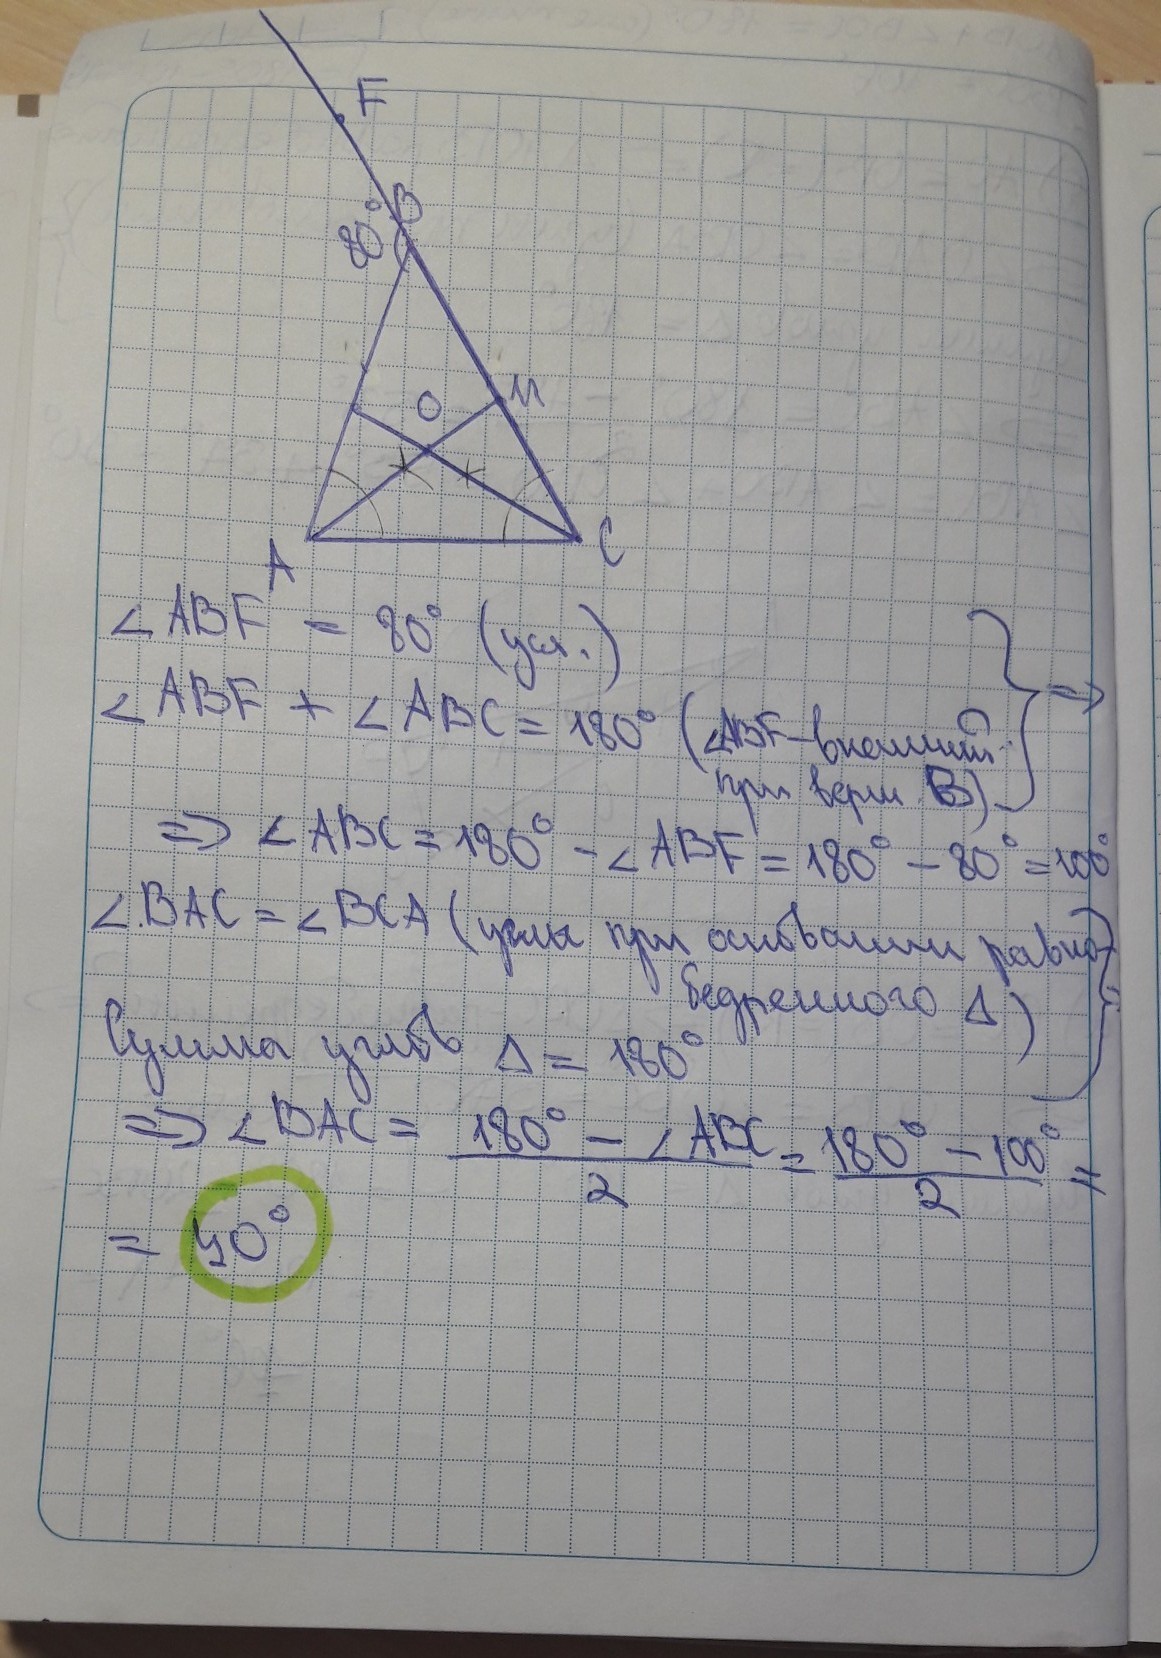 F
B
80°
O
M
A
C
∠ABF = 80° (усл.)
∠ABF + ∠ABC = 180° (∠ABF – внешний
при верш. B) } =>
=> ∠ABC = 180° - ∠ABF = 180° - 80° = 100°
∠BAC = ∠BCA (углы при основании равно-
бедренного Δ)
Сумма углов Δ = 180°
=> ∠BAC = (180° - ∠ABC)/2 = (180° - 100°)/2 =
= 40°